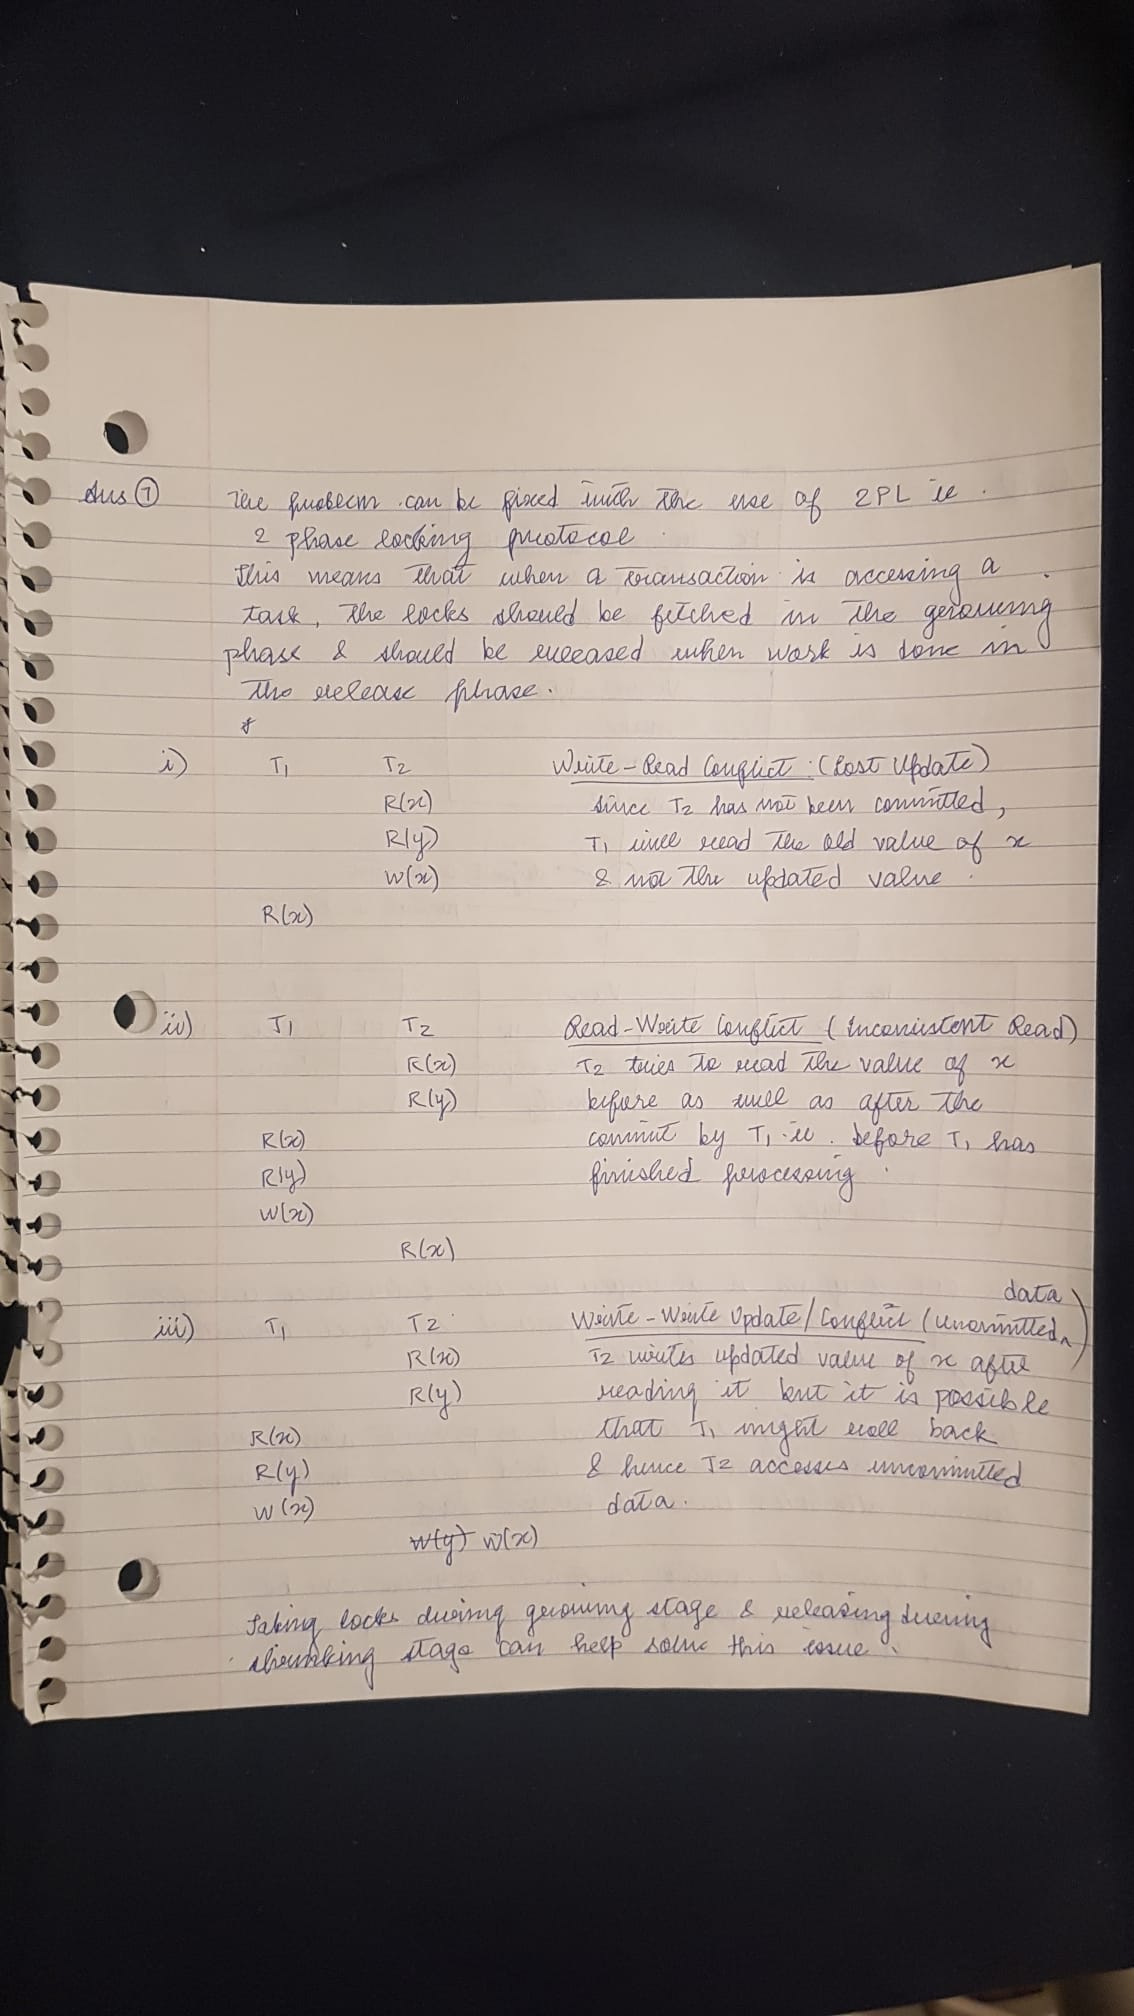 Ans ⑦ The problem can be fixed with the use of 2PL ie.
2 phase locking protocol.
This means that when a transaction is accessing a
task, the locks should be fetched in the growing
phase & should be released when work is done in
the release phase.
i) T1 T2 Write-Read Conflict: (Lost Update)
R(x) since T2 has not been committed,
R(y) T1 will read the old value of x
W(x) & not the updated value.
R(x)
ii) T1 T2 Read-Write Conflict (Inconsistent Read)
R(x) T2 tries to read the value of x
R(y) before as well as after the
R(x) commit by T1 ie. before T1 has
R(y) finished processing.
W(x)
R(x)
data
iii) T1 T2 Write-Write Update/Conflict (Uncommitted)
R(x) T2 writes updated value of x after
R(y) reading it but it is possible
R(x) that T1 might roll back
R(y) & hence T2 accesses uncommitted
W(x) data.
W(y) W(x)
Taking locks during growing stage & releasing during
shrinking stage can help solve this issue.